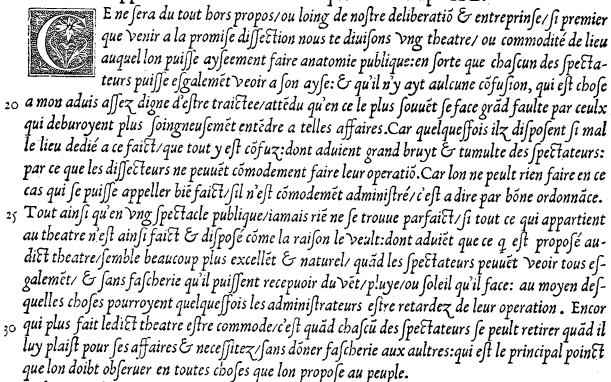 CE ne ſera du tout hors propos/ou loing de noſtre deliberatiõ & entreprinſe/ſi premier
que venir a la promiſe diſſection nous te diuiſons vng theatre/ ou commodité de lieu
auquel lon puiſſe ayſeement faire anatomie publique:en ſorte que chaſcun des ſpecta-
teurs puiſſe eſgalemẽt veoir a ſon ayſe:& qu'il n'y ayt aulcune cõfuſion, qui eſt choſe
20 a mon aduis aſſez digne d'eſtre traictee/attẽdu qu'en ce le plus ſouuẽt ſe face grãd faulte par ceulx
qui deburoyent plus ſoingneuſemẽt entẽdre a telles affaires.Car quelqueſfois ilz diſpoſent ſi mal
le lieu dedié a ce faict/que tout y eſt cõfuz:dont aduient grand bruyt & tumulte des ſpectateurs:
par ce que les diſſecteurs ne peuuẽt cõmodement faire leur operatiõ.Car lon ne peult rien faire en ce
cas qui ſe puiſſe appeller biẽ faict/ſil n'eſt cõmodemẽt adminiſtré/c'eſt a dire par bõne ordonnãce.
25 Tout ainſi qu'en vng ſpectacle publique/iamais riẽ ne ſe trouue parfaict/ſi tout ce qui appartient
au theatre n'eſt ainſi faict & diſpoſé cõme la raiſon le veult:dont aduiẽt que ce q̃ eſt propoſé au-
dict theatre/ſemble beaucoup plus excellẽt & naturel/ quãd les ſpectateurs peuuẽt veoir tous eſ-
galemẽt/ & ſans faſcherie qu'il puiſſent recepuoir du vẽt/pluye/ou ſoleil qu'il face: au moyen deſ-
quelles choſes pourroyent quelqueſfois les adminiſtrateurs eſtre retardez de leur operation . Encor
30 qui plus fait ledict theatre eſtre commode/c'eſt quãd chaſcũ des ſpectateurs ſe peult retirer quãd il
luy plaiſt pour ſes affaires & neceſſitez/ſans dõner faſcherie aux aultres:qui eſt le principal poinct
que lon doibt obſeruer en toutes choſes que lon propoſe au peuple.